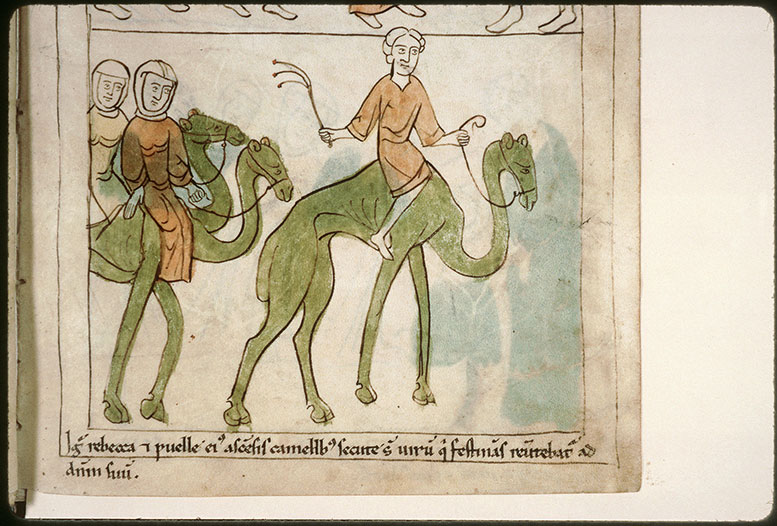 Igͬ rebecca ⁊ puelle ei᷒ ascēsis camellib᷒ secute s̄ uirū q̇ festinās reūtebat᷑ ad
dn̄m suū.